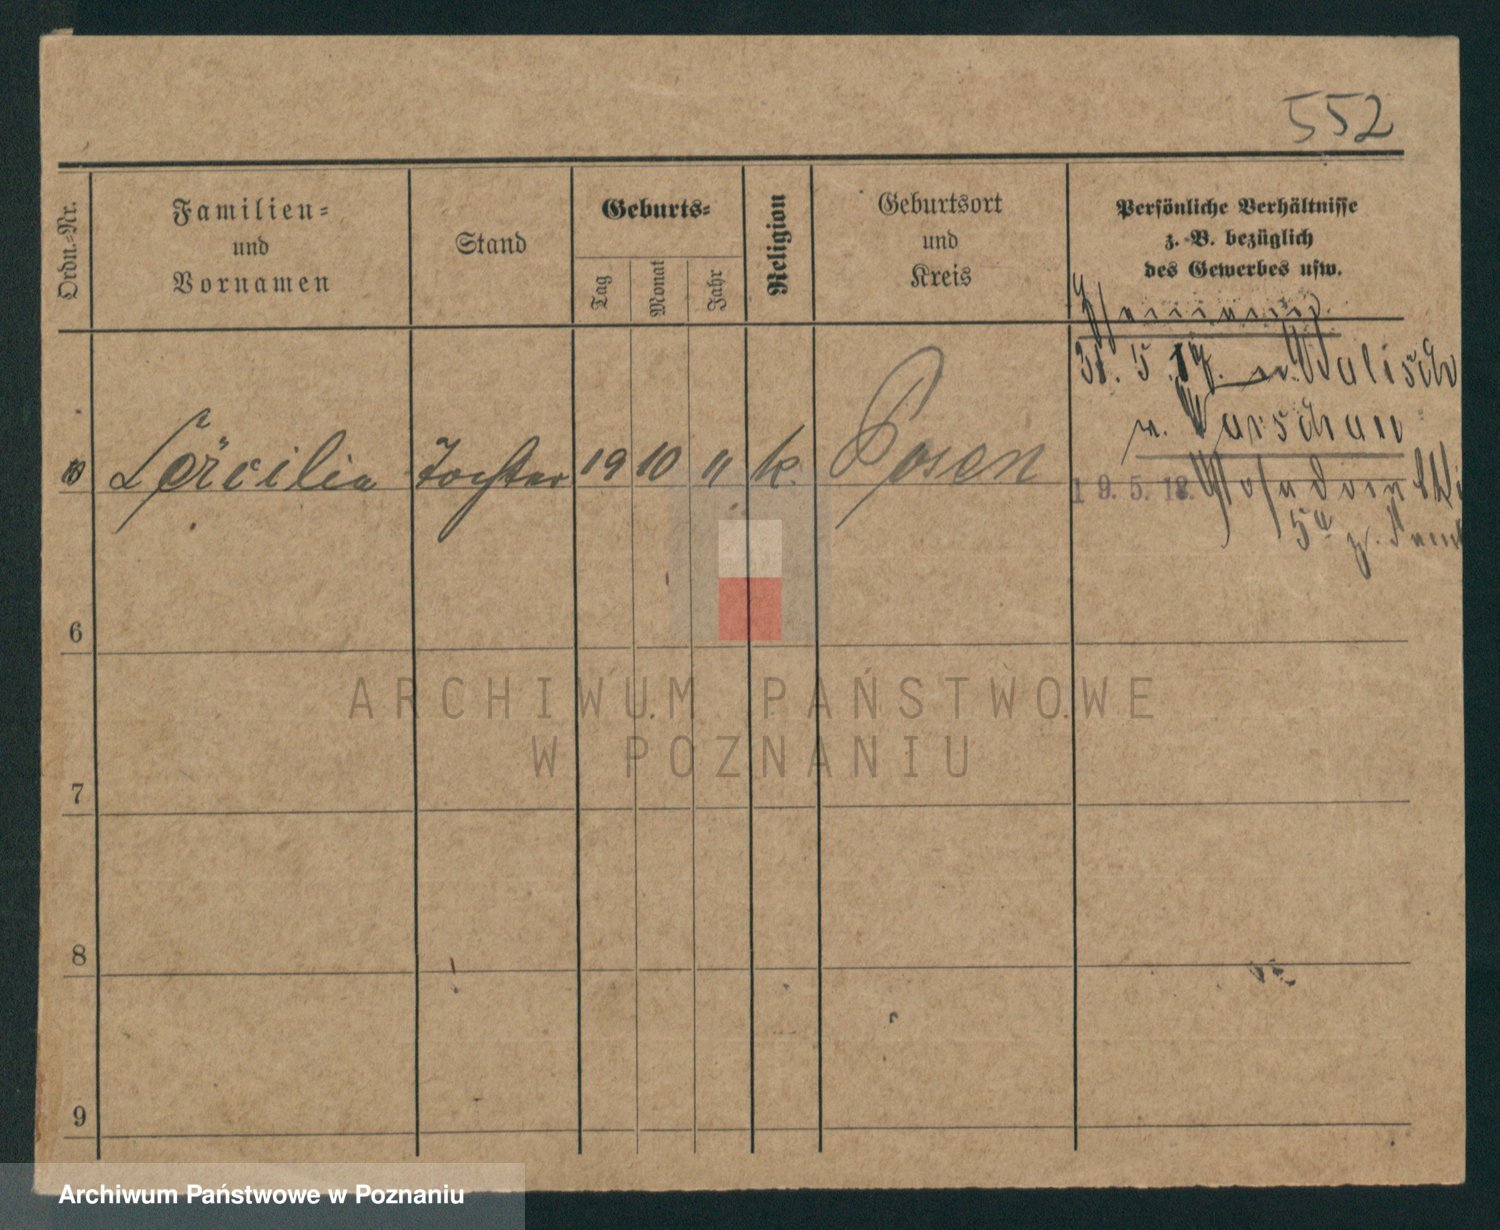 552
Ordn.-Nr.
Familien-
und
Vornamen
Stand
Geburts-
Tag
Monat
Jahr
Religion
Geburtsort
und
Kreis
Persönliche Verhältnisse
z. B. bezüglich
des Gewerbes usw.
31. 5. 17. Walisch
n. Warschau
Cäcilia Tochter 19 10 11 k. Posen
19. 5. 18.
6
7
8
9
ARCHIWUM PAŃSTWOWE
W POZNANIU
Archiwum Państwowe w Poznaniu